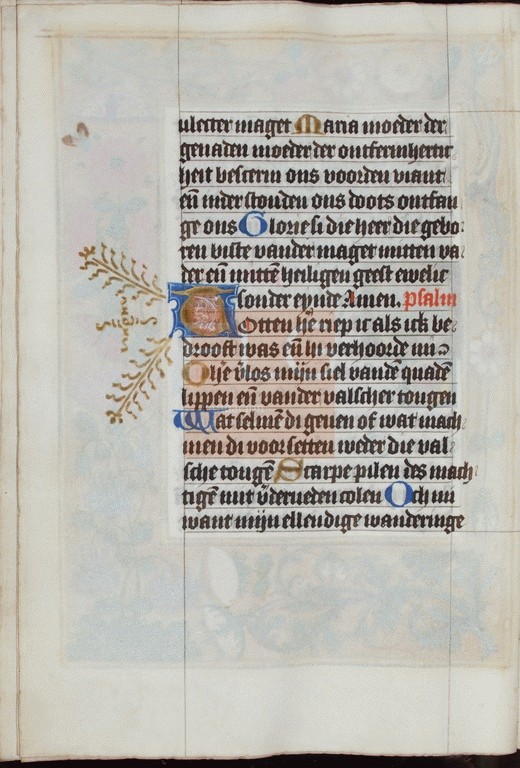 uletter maget Maria moeder der
genaden moeder der ontfermhertic
heit bescerm ons voorden viant
eñ inder stonden ons doots ontfan
ge ons Glorie si die heer die gebo
ren biste vander maget mitten va
der eñ mittē heiligen geest ewelic
sonder eynde Amen. psalm
Totten he riep ic als ick be
droeft was eñ hi verhoorde mi
O he v̄los mijn siel vandē quadē
lippen eñ vander valscher tongen
Wat selmē di geuen of wat mach
men di voor setten weder die val
sche tongē Scarpe pilen des mach
tigē mit v̄derueden colen Och mi
want mijn ellendige wanderinge